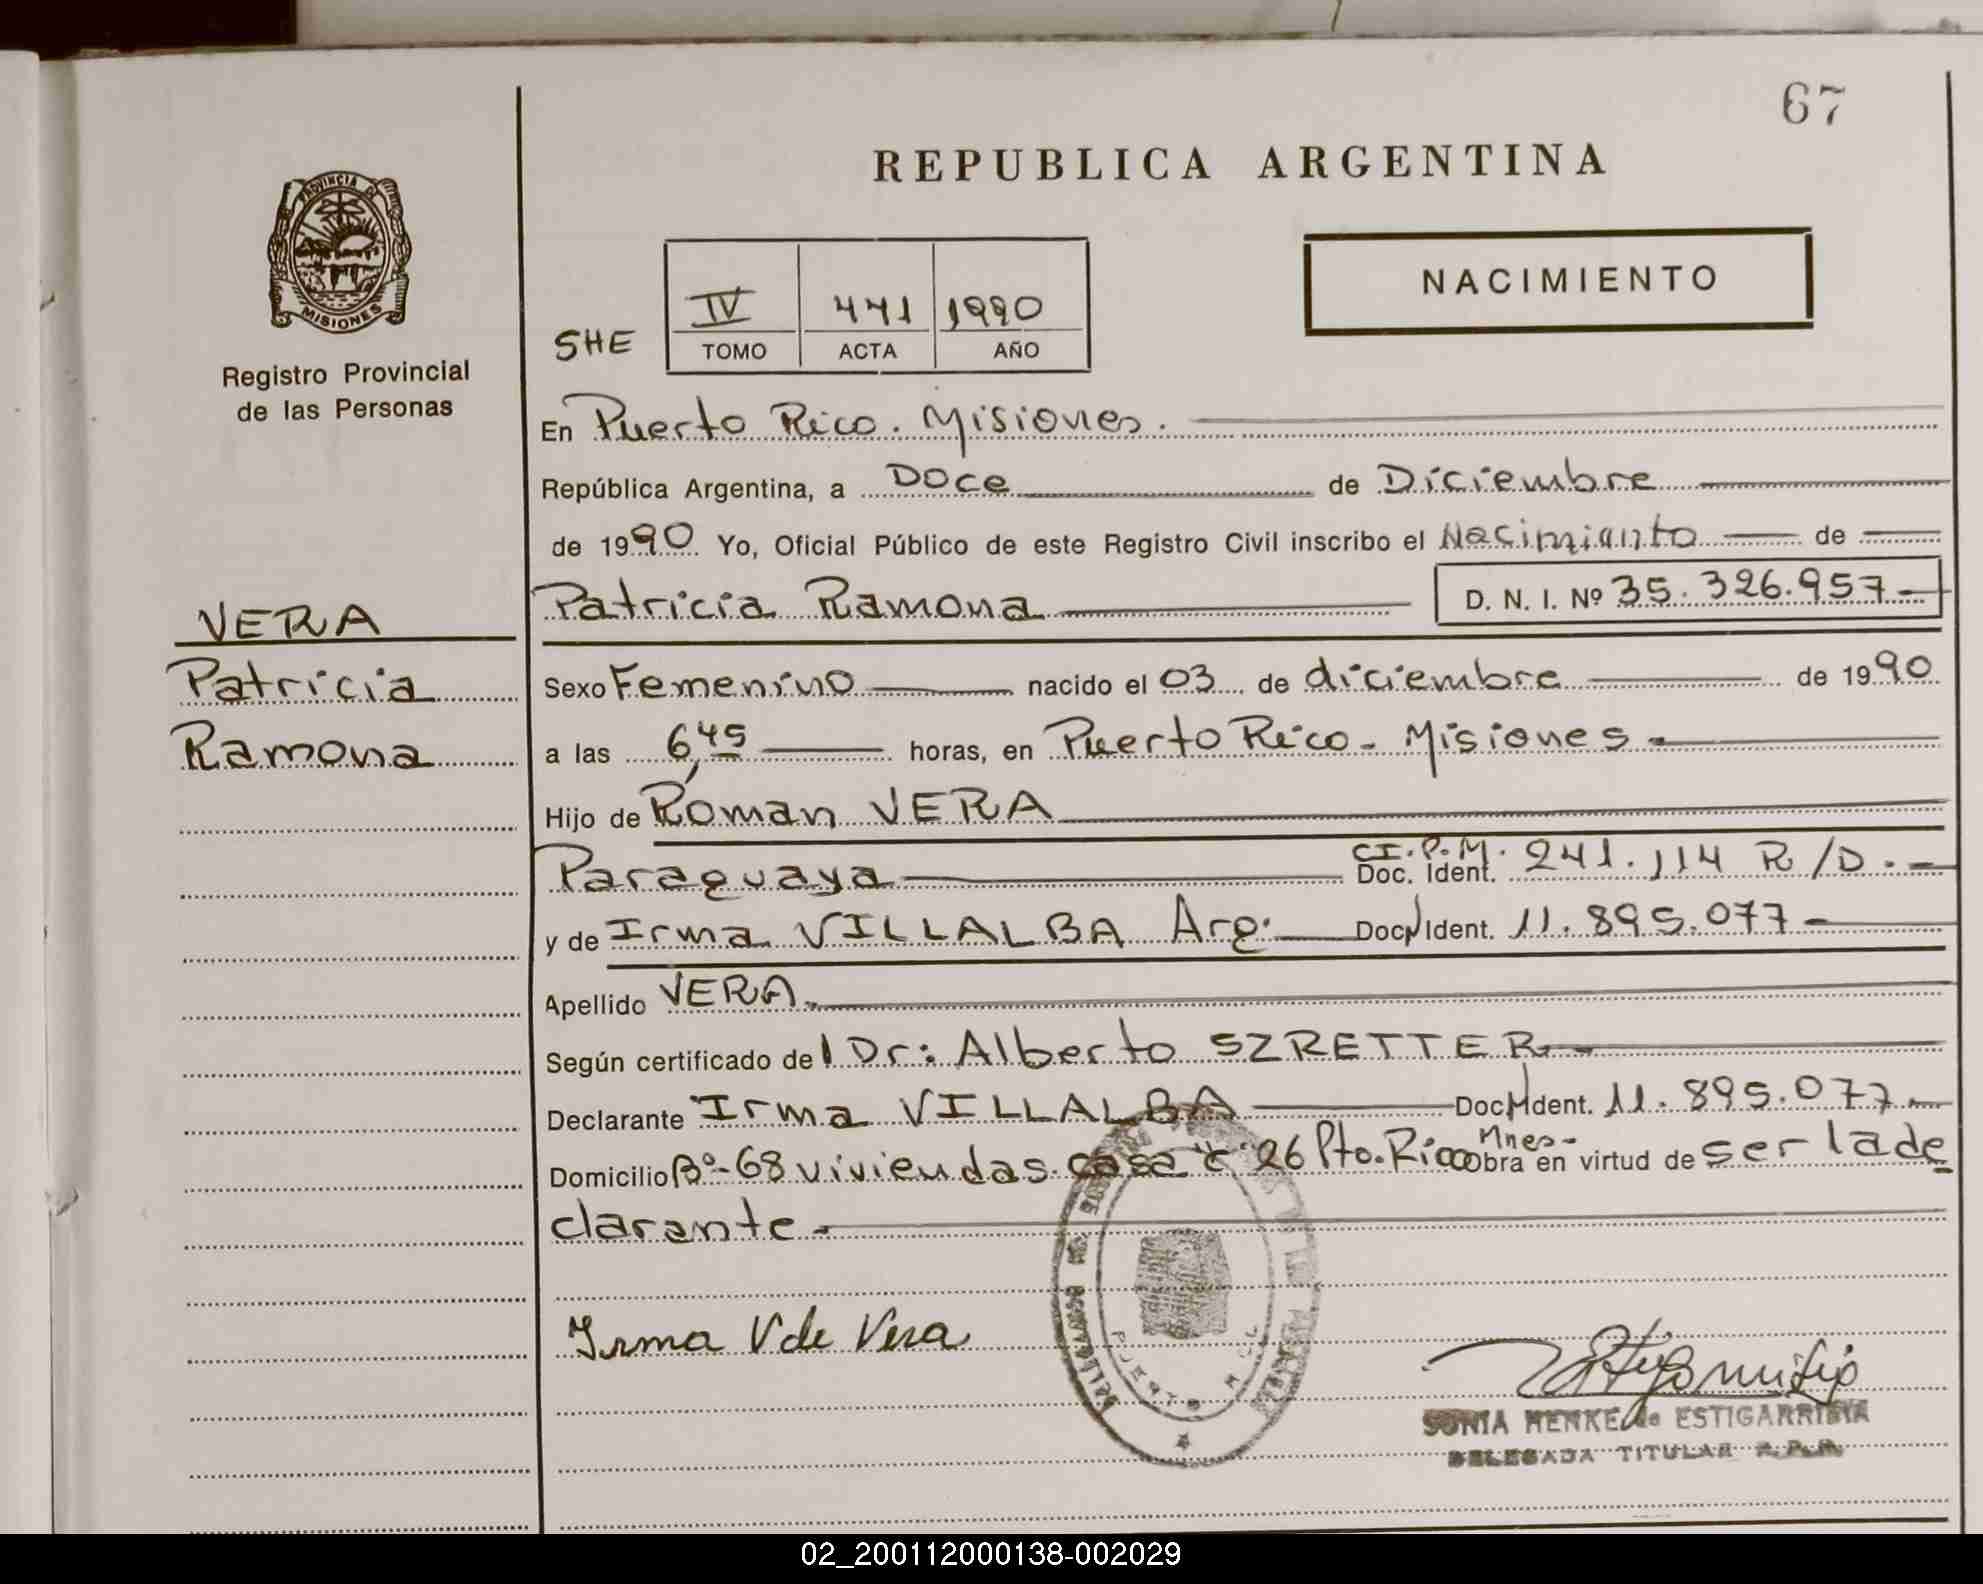 67
REPUBLICA ARGENTINA
PROVINCIA DE
MISIONES
Registro Provincial
de las Personas
NACIMIENTO
SHE
IV 441 1990
TOMO ACTA AÑO
En Puerto Rico. Misiones.
República Argentina, a Doce de Diciembre
de 1990 Yo, Oficial Público de este Registro Civil inscribo el Nacimianto de
VERA
Patricia Ramona D. N. I. Nº 35.326.957
Patricia
Sexo Femenino nacido el 03 de diciembre de 1990
Ramona
a las 6,45 horas, en Puerto Rico - Misiones
Hijo de Roman VERA
Paraguaya C.I.P.M. Doc. Ident. 241.114 R/D.
y de Irma VILLALBA Arg. Doc. Ident. 11.895.077
Apellido VERA
Según certificado del Dr: Alberto SZRETTER
Declarante Irma VILLALBA Doc Ident. 11.895.077
Domicilio Bº-68 viviendas casa 26 Pto. Rico Mnes- obra en virtud de ser la de
clarante
Irma V de Vera
PUERTO RICO
SONIA HENKE de ESTIGARRIBIA
DELEGADA TITULAR R.P.P.
02_200112000138-002029